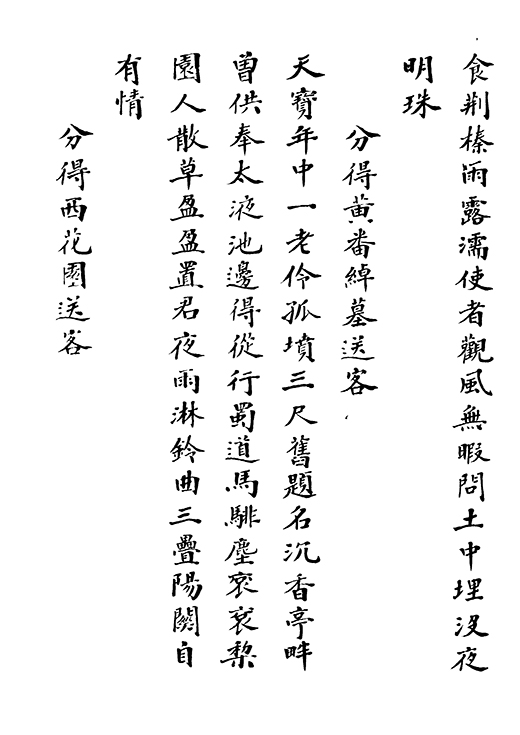 食荆榛雨露濡使者觀風無暇問土中埋没夜
明珠
分得黄番綽墓送客
天寶年中一老伶孤墳三尺舊題名沉香亭畔
曽供奉太液池邊得從行蜀道馬騑塵衮衮梨
園人散草盈盈置君夜雨淋鈴曲三疊陽關自
有情
分得西花園送客